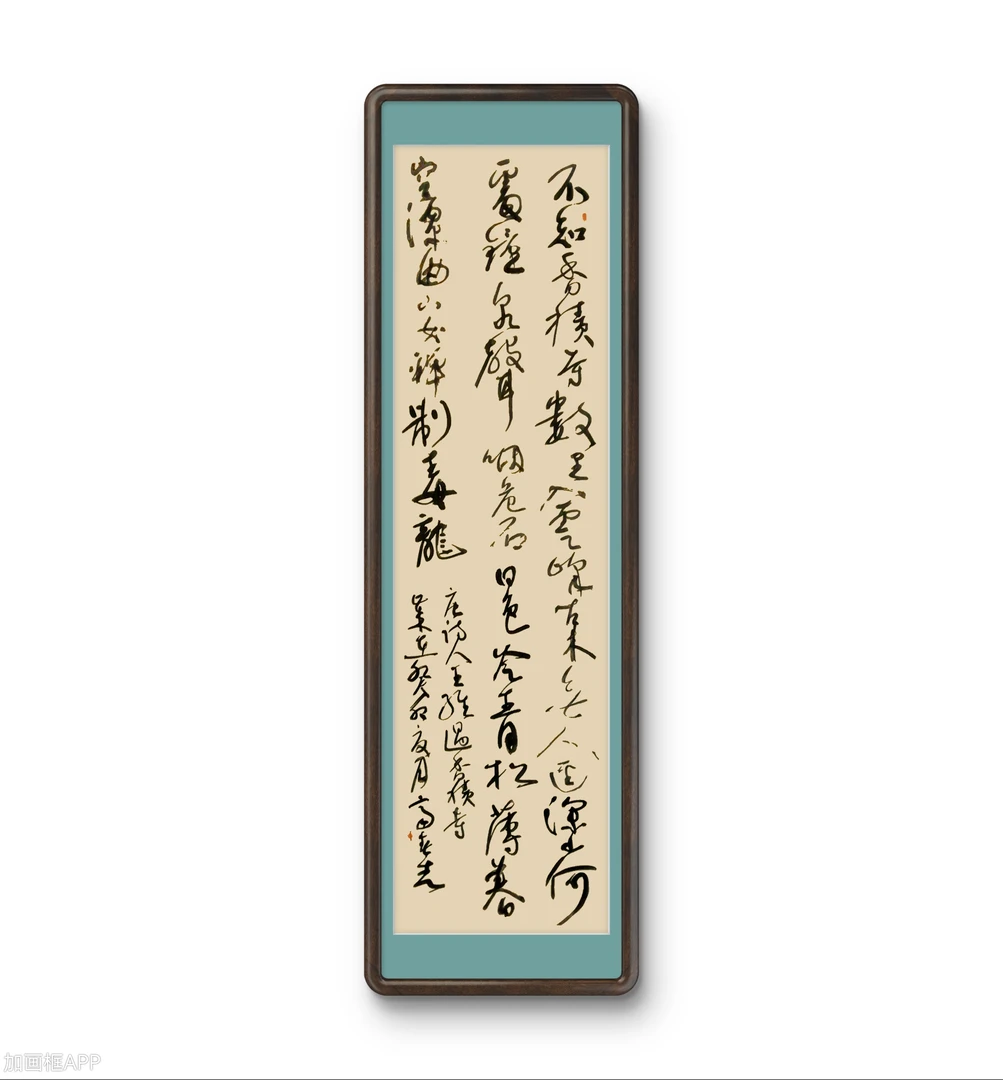 不知香積寺數里入雲峰古木無人逕深山何
處鐘泉聲咽危石日色冷青松薄暮
空潭曲安禪制毒龍
唐詩人王維過香積寺
歲在癸卯夏月高志
加画框APP